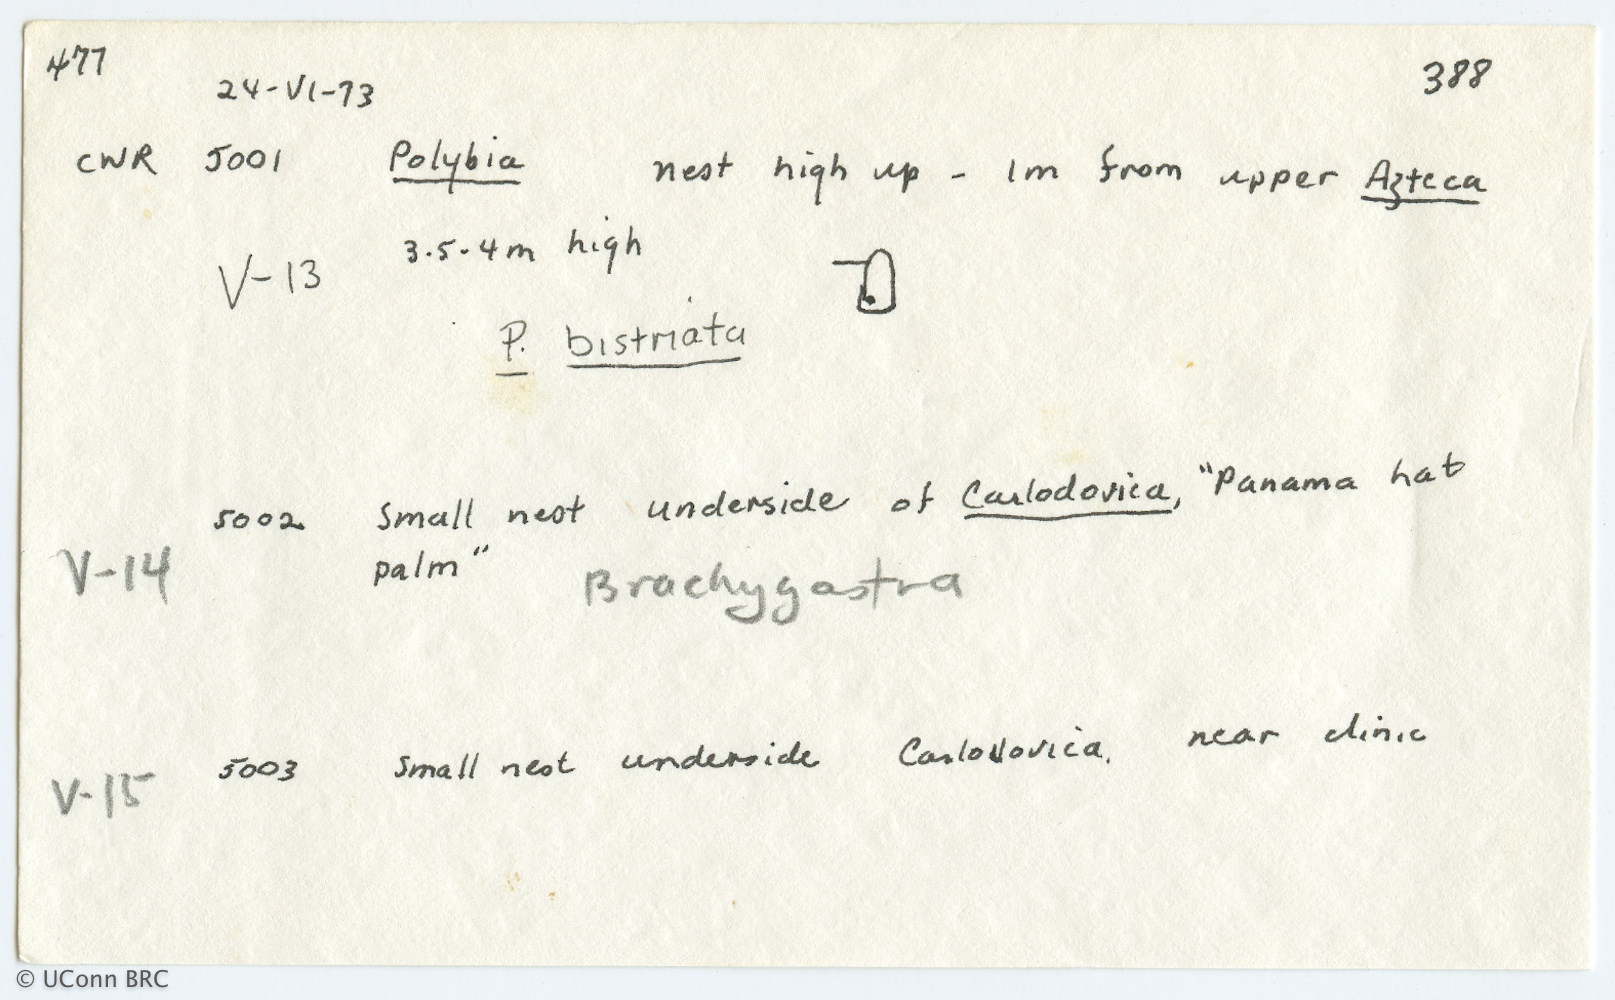 477
388
24-VI-73
CWR 5001 Polybia nest high up - 1m from upper Azteca
3.5-4m high
V-13
P. bistriata
5002 Small nest underside of Carlodovica, "Panama hat
palm"
V-14
Brachygastra
5003 Small nest underside Carlodovica. near clinic
V-15
© UConn BRC